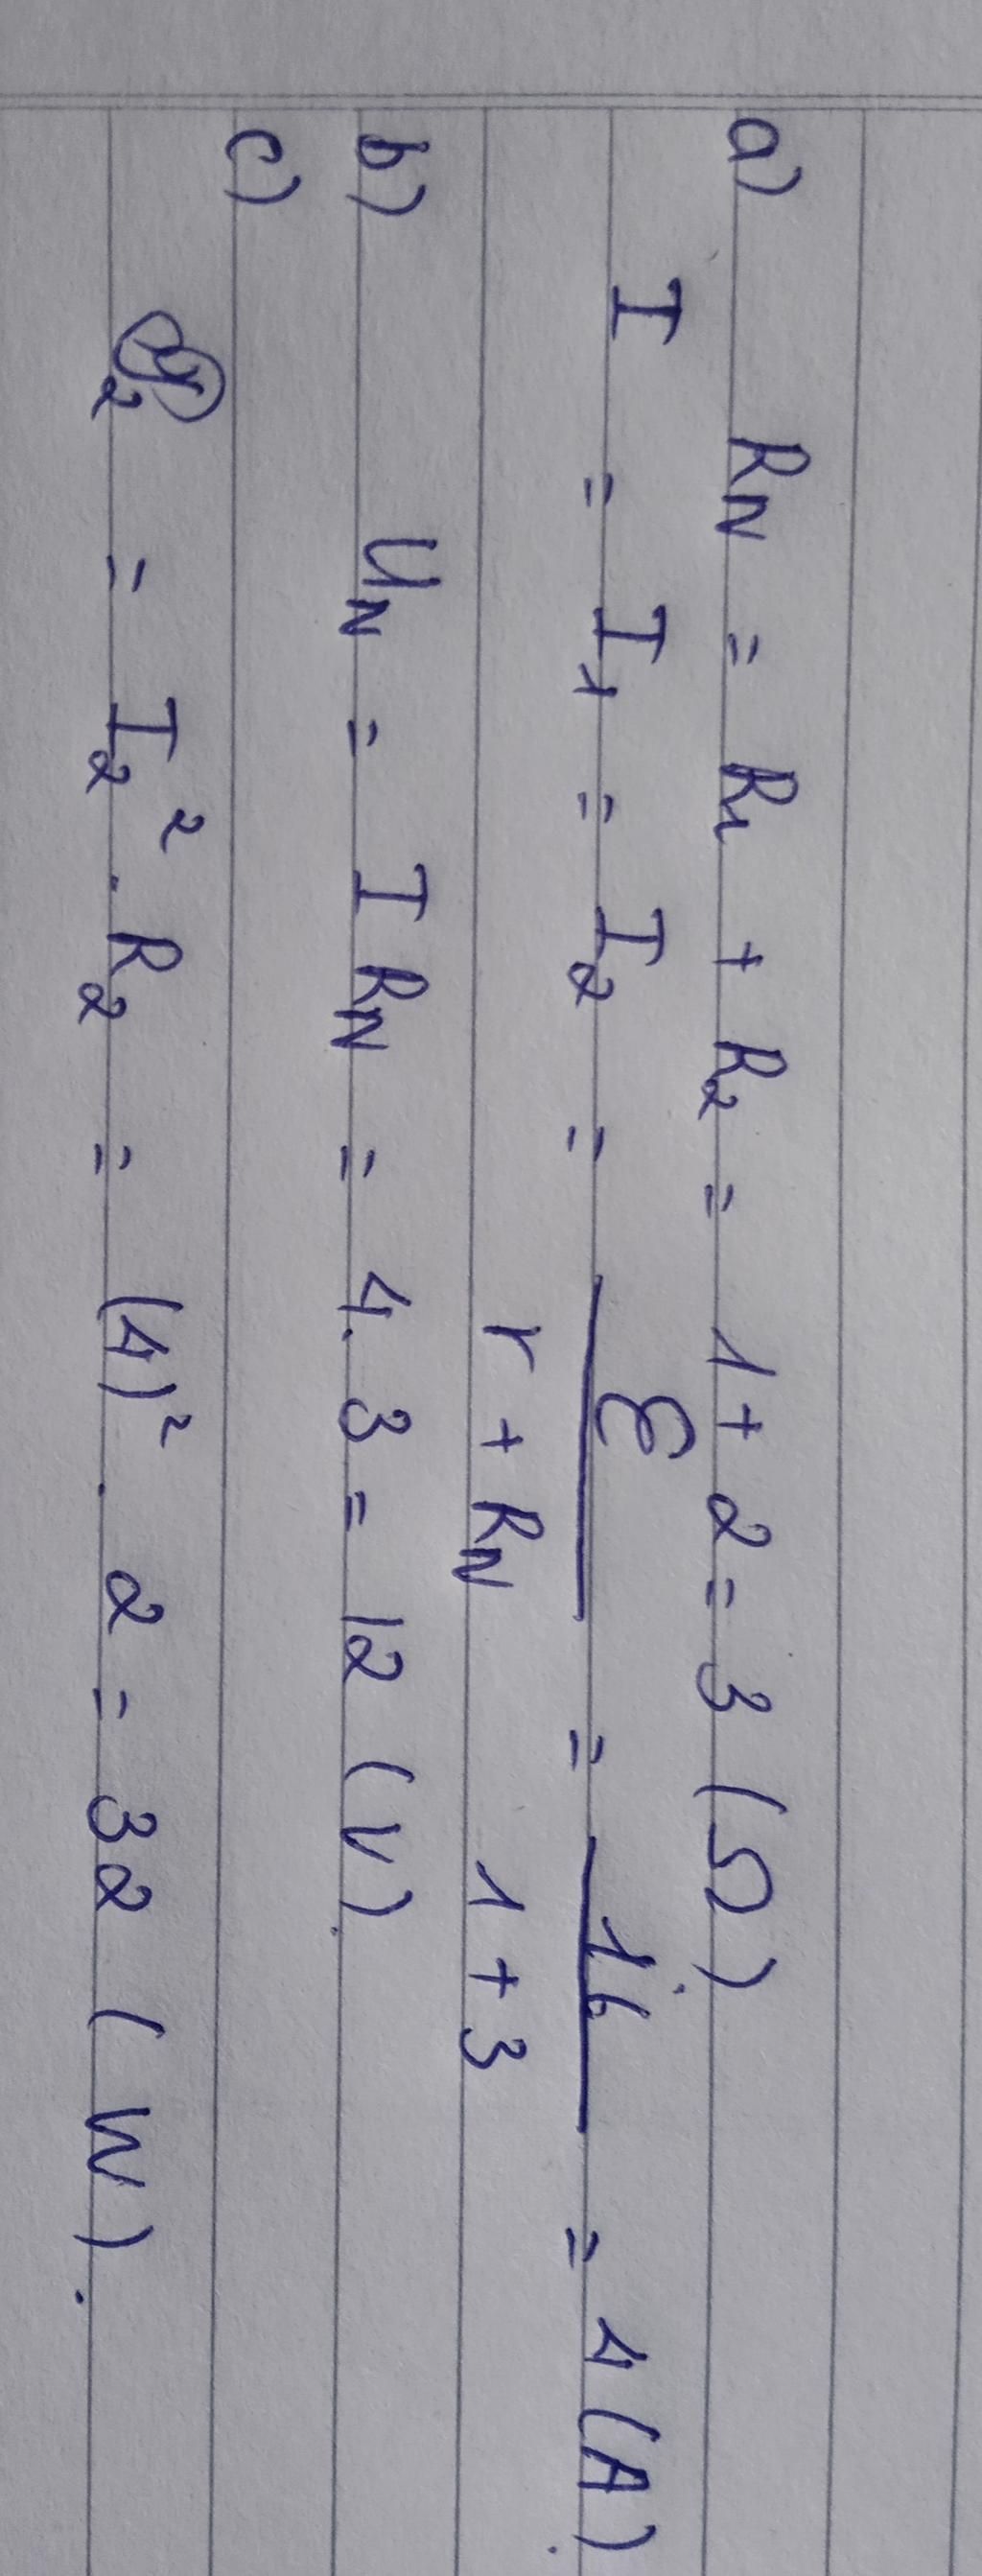 a) RN = R1 + R2 = 1 + 2 = 3 (Ω)
I = I1 = I2 = ℰ / r + RN = 16 / 1 + 3 = 4 (A).
b) UN = I RN = 4. 3 = 12 (V).
c)
𝒫2 = I2² . R2 = (4)² . 2 = 32 (W).